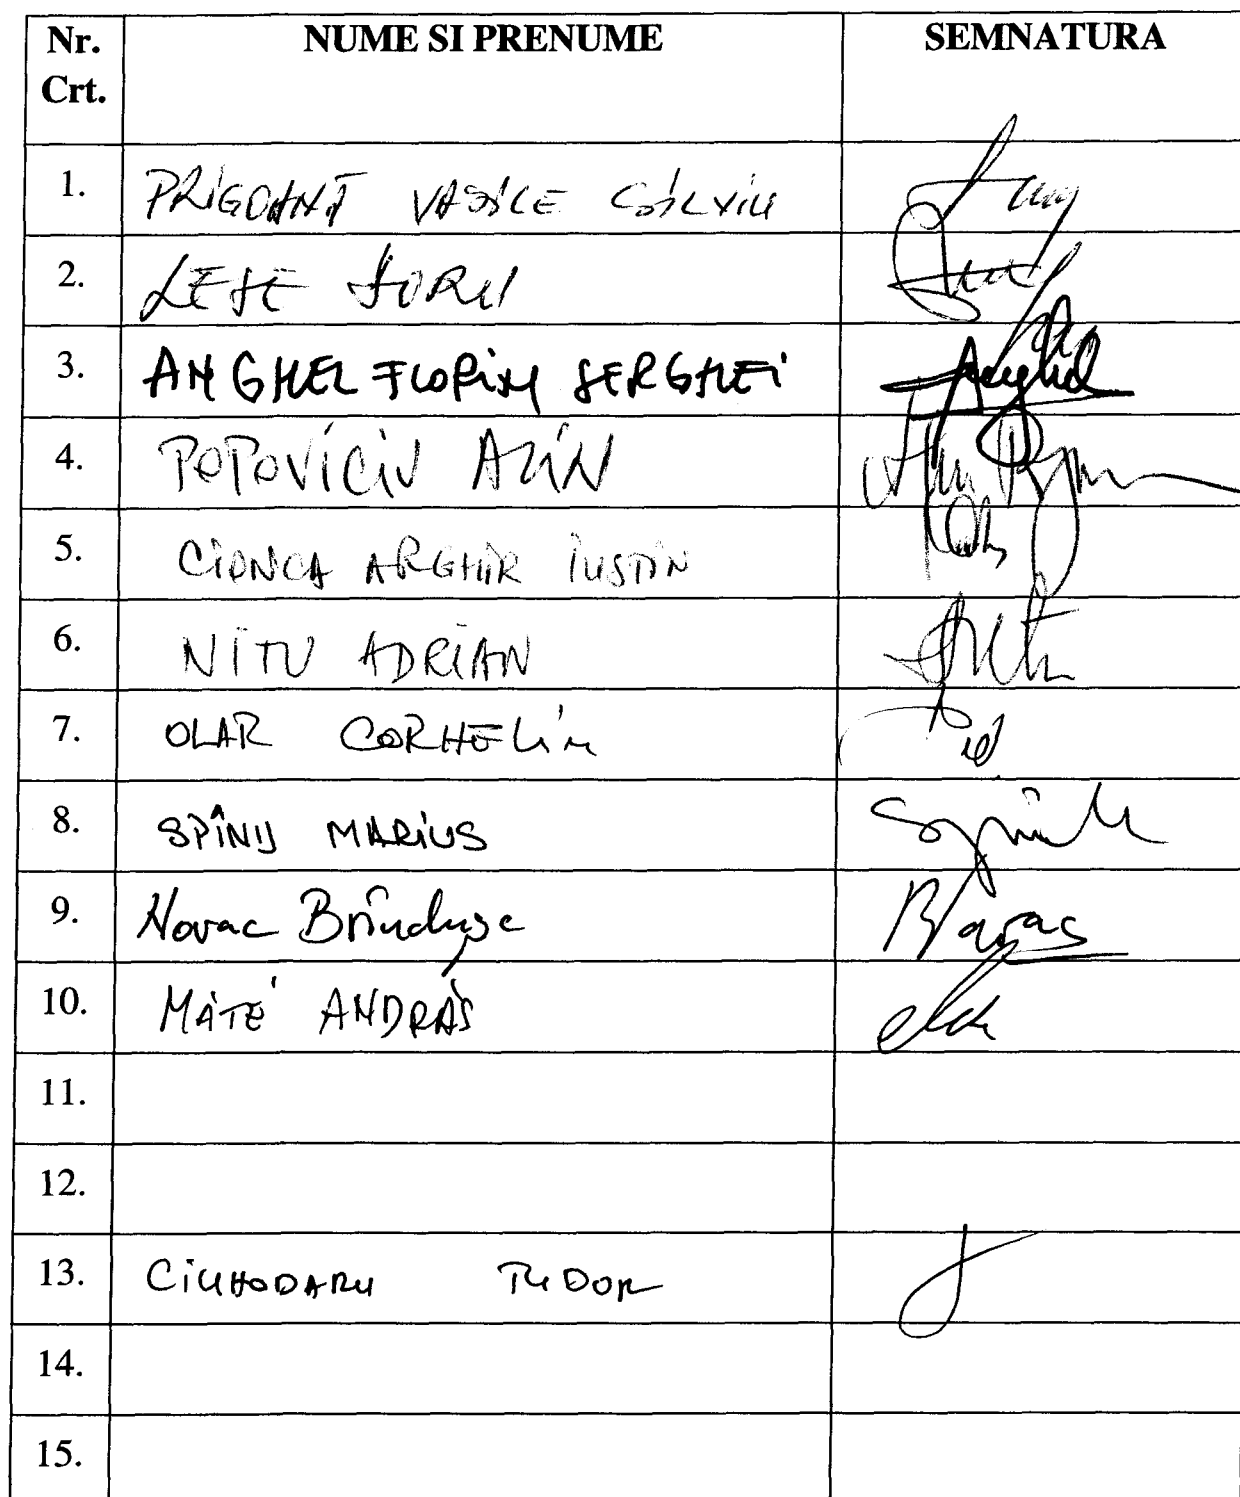 Nr. Crt. NUME SI PRENUME SEMNATURA
1. PRIGOANĂ VASILE SILVIU
2. LEŞE SORIN
3. ANGHEL FLORIN SERGHEI Anghel
4. POPOVICIU ALIN
5. CIONCA ARGHIR IUSTIN
6. NITU ADRIAN
7. OLAR CORNELIU
8. SPÎNU MARIUS
9. Novac Brînduşa
10. MÁTÉ ANDRÁS
11.
12.
13. CIUHODARU TUDOR
14.
15.